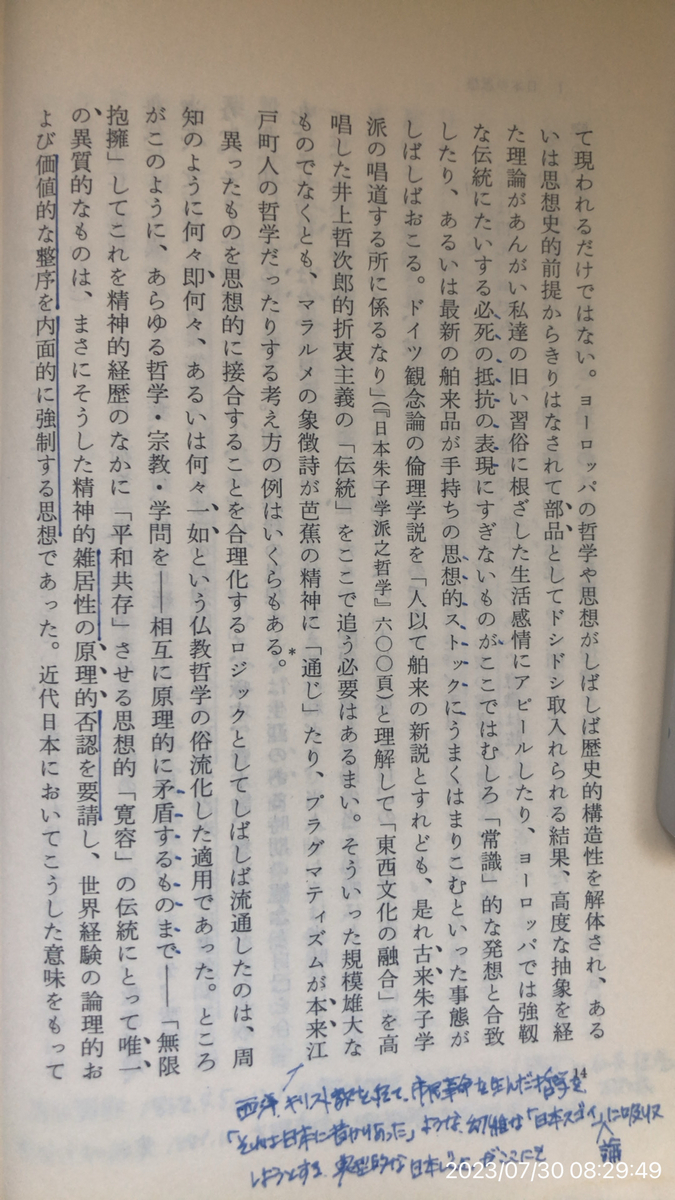 て現われるだけではない。ヨーロッパの哲学や思想がしばしば歴史的構造性を解体され、ある
いは思想史的前提からきりはなされて部品としてドシドシ取入れられる結果、高度な抽象を経
た理論があんがい私達の旧い習俗に根ざした生活感情にアピールしたり、ヨーロッパでは強靱
な伝統にたいする必死の抵抗の表現にすぎないものがここではむしろ「常識」的な発想と合致
したり、あるいは最新の舶来品が手持ちの思想的ストックにうまくはまりこむといった事態が
しばしばおこる。ドイツ観念論の倫理学説を「人以て舶来の新説とすれども、是れ古来朱子学
派の唱道する所に係るなり」(『日本朱子学派之哲学』六〇〇頁)と理解して「東西文化の融合」を高
唱した井上哲次郎的折衷主義の「伝統」をここで追う必要はあるまい。そういった規模雄大な
ものでなくとも、マラルメの象徴詩が芭蕉の精神に「通じ」たり、プラグマティズムが本来江
戸町人の哲学だったりする考え方の例はいくらもある。*
異ったものを思想的に接合することを合理化するロジックとしてしばしば流通したのは、周
知のように何々即何々、あるいは何々一如という仏教哲学の俗流化した適用であった。ところ
がこのように、あらゆる哲学・宗教・学問を——相互に原理的に矛盾するものまで——「無限
抱擁」してこれを精神的経歴のなかに「平和共存」させる思想的「寛容」の伝統にとって唯一
の異質的なものは、まさにそうした精神的雑居性の原理的否認を要請し、世界経験の論理的お
よび価値的な整序を内面的に強制する思想であった。近代日本においてこうした意味をもって
14
西洋、キリスト教を経て、市民革命を生んだ哲学を
「それは日本に昔からあった」ような、幼稚な「日本スゴイ論」に吸収
しようとする、典型的な日本
2023/07/30 08:29:49